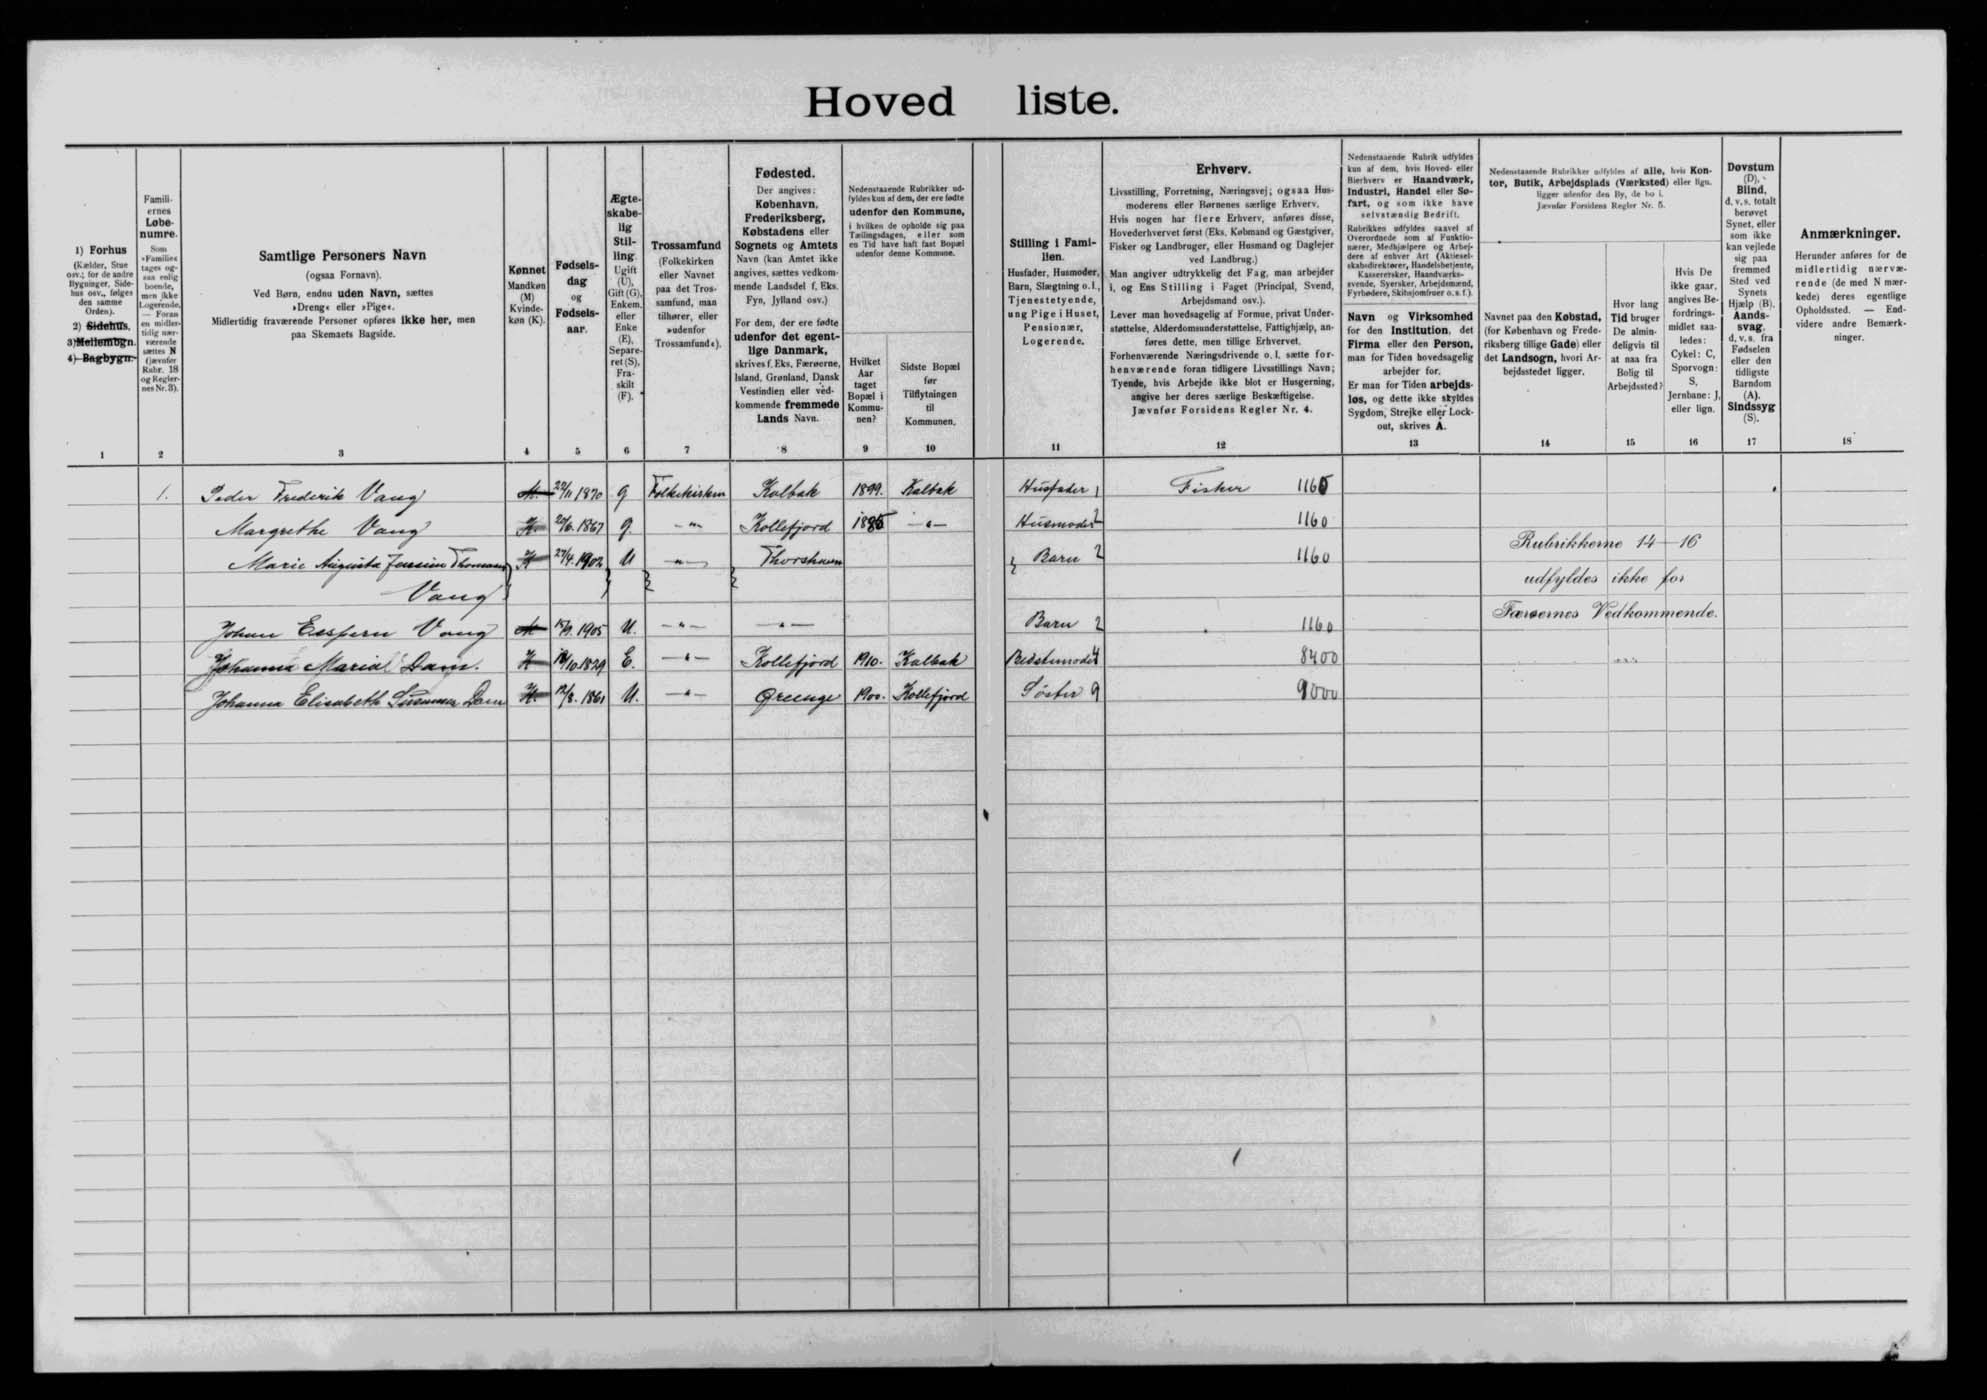 Hoved liste.
1) Forhus
(Kælder, Stue
osv.; for de andre
Bygninger, Side-
hus osv., følges
den samme
Orden).
2) Sidehus,
3) Mellembgn.
4) Bagbygn.
Famili-
ernes
Løbe-
numre.
Som
»Familie«
tages og-
saa enlig
boende,
men ikke
Logerende,
— Foran
en midler-
tidig nær-
værende
sættes N
(jævnfør
Rubr. 18
og Regler-
nes Nr. 3).
Samtlige Personers Navn
(ogsaa Fornavn).
Ved Børn, endnu uden Navn, sættes
»Dreng« eller »Pige«.
Midlertidig fraværende Personer opføres ikke her, men
paa Skemaets Bagside.
Kønnet
Mandkøn
(M)
Kvinde-
køn (K).
Fødsels-
dag
og
Fødsels-
aar.
Ægte-
skabe-
lig
Stil-
ling.
Ugift
(U),
Gift (G),
Enkem.
eller
Enke
(E),
Separe-
ret (S),
Fra-
skilt
(F).
Trossamfund
(Folkekirken
eller Navnet
paa det Tros-
samfund, man
tilhører, eller
»udenfor
Trossamfund«).
Fødested.
Der angives:
København,
Frederiksberg,
Købstadens eller
Sognets og Amtets
Navn (kan Amtet ikke
angives, sættes vedkom-
mende Landsdel f. Eks.
Fyn, Jylland osv.)
For dem, der ere fødte
udenfor det egent-
lige Danmark,
skrives f. Eks. Færøerne,
Island, Grønland, Dansk
Vestindien eller ved-
kommende fremmede
Lands Navn.
Nedenstaaende Rubrikker ud-
fyldes kun af dem, der ere fødte
udenfor den Kommune,
i hvilken de opholde sig paa
Tællingsdagen, eller som
en Tid have haft fast Bopæl
udenfor denne Kommune.
Hvilket
Aar
taget
Bopæl i
Kommu-
nen?
Sidste Bopæl
før
Tilflytningen
til
Kommunen.
Stilling i Fami-
lien.
Husfader, Husmoder,
Barn, Slægtning o. l.,
Tjenestetyende,
ung Pige i Huset,
Pensionær,
Logerende.
Erhverv.
Livsstilling, Forretning, Næringsvej; ogsaa Hus-
moderens eller Børnenes særlige Erhverv.
Hvis nogen har flere Erhverv, anføres disse,
Hovederhvervet først (Eks. Købmand og Gæstgiver,
Fisker og Landbruger, eller Husmand og Daglejer
ved Landbrug.)
Man angiver udtrykkelig det Fag, man arbejder
i, og Ens Stilling i Faget (Principal, Svend,
Arbejdsmand osv.).
Lever man hovedsagelig af Formue, privat Under-
støttelse, Alderdomsunderstøttelse, Fattighjælp, an-
føres dette, men tillige Erhvervet.
Forhenværende Næringsdrivende o. l. sætte for-
henværende foran tidligere Livsstillings Navn;
Tyende, hvis Arbejde ikke blot er Husgerning,
angive her deres særlige Beskæftigelse.
Jævnfør Forsidens Regler Nr. 4.
Nedenstaaende Rubrik udfyldes
kun af dem, hvis Hoved- eller
Bierhverv er Haandværk,
Industri, Handel eller Sø-
fart, og som ikke have
selvstændig Bedrift.
Rubrikken udfyldes saavel af
Overordnede som af Funktio-
nærer, Medhjælpere og Arbej-
dere af enhver Art (Aktiesel-
skabsdirektører, Handelsbetjente,
Kassererske, Haandværks-
svende, Syersker, Arbejdsmænd,
Fyrbødere, Skibsjomfruer o. s. f.).
Navn og Virksomhed
for den Institution, det
Firma eller den Person,
man for Tiden hovedsagelig
arbejder for.
Er man for Tiden arbejds-
løs, og dette ikke skyldes
Sygdom, Strejke eller Lock-
out, skrives A.
Nedenstaaende Rubrikker udfyldes af alle, hvis Kon-
tor, Butik, Arbejdsplads (Værksted) eller lign.
ligger udenfor den By, de bo i.
Jævnfør Forsidens Regler Nr. 5.
Navnet paa den Købstad,
(for København og Frede-
riksberg tillige Gade) eller
det Landsogn, hvori Ar-
bejdsstedet ligger.
Hvor lang
Tid bruger
De almin-
deligvis til
at naa fra
Bolig til
Arbejdssted?
Hvis De
ikke gaar,
angives Be-
fordrings-
midlet saa-
ledes:
Cykel: C,
Sporvogn:
S,
Jernbane: J,
eller lign.
Døvstum
(D),
Blind,
d. v. s. totalt
berøvet
Synet, eller
som ikke
kan vejlede
sig paa
fremmed
Sted ved
Synets
Hjælp (B).
Aands-
svag,
d. v. s. fra
Fødselen
eller den
tidligste
Barndom
(A).
Sindssyg
(S).
Anmærkninger.
Herunder anføres for de
midlertidig nærvæ-
rende (de med N mær-
kede) deres egentlige
Opholdssted. — End-
videre andre Bemærk-
ninger.
1 2 3 4 5 6 7 8 9 10 11 12 13 14 15 16 17 18
1. Peder Frederik Vang M. 22/11 1870 G Folkekirken Kalbak 1899. Kalbak Husfader 1 Fisker 1160
Margrethe Vang K. 1867 G. -"- Kollefjord 1885 -"- Husmoder 2 1160
Marie Augusta Jensine Thomine K 27/4. 1902 U -"- Thorshavn Barn 2 1160 Rubrikkerne 14–16
Vang udfyldes ikke for
Johan Esspern Vang M 1905 U. -"- -"- Barn 2 1160 Færøernes Vedkommende.
Johanne Maria Dam. K 10 1829 E. -"- Kollefjord 1910. Kalbak Bedstemoder 4 8400
Johanna Elisabeth Susanna Dam K. 12/8. 1861 U. -"- 1900. Kollefjord Søster 9 9000